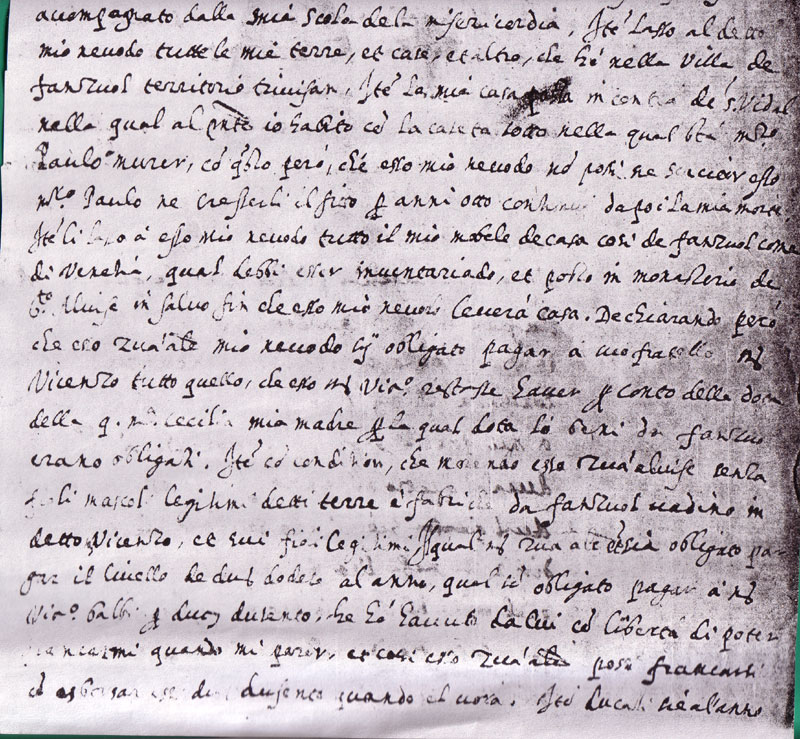 acompagnato dalla mia scola dela misericordia, Ité lasso al detto
mio nevodo tutte le mie terre, et case, et altro, che hó nella villa de
fanzuol territorio trivisan, Ité la mia casa posta in contra de s. Vidal
nella qual al pnte io habito có la caseta sotto nella qual stá
Paulo murer, có qsto peró, ché esso mio nevodo nó possi ne scacciar esso
Paulo ne cresserli il fitto p anni otto continui dapoi la mia morte
Ité li lasso á esso mio nevodo tutto il mio mobele de casa cosi de fanzuol come
di Venetia, qual debbi esser inventariado, et posto in monasterio de
Sto. Aluise in salvo fin che esso mio nevodo leverá casa. Dechiarando peró
che esso mio nevodo sij obligato pagar á suo fratello ms
Vicenzo tutto quello, che esso ms Vico. restasse haver p conto della dota
della q. ma cecilia mia madre p la qual dota li beni da fanzuol
erano obligati. Ité có condition, che morendo esso Zuá aluise senza
fioli mascoli legitimi dette terre é fabriche da fanzuol vadino in
detto Vicenzo, et sui fioli legitimi qual ms Zua obligato pa-
gar il livello de duc dodese al anno, qual só obligato pagar á ms
Vico. balbi p ducti dusento, che hó havuto da lui có libertá di poter
francarmi quando mi parer, et cosi esso possi francarsi
có esborsar essi duc dusento quando el vorá. Ité ducati al anno